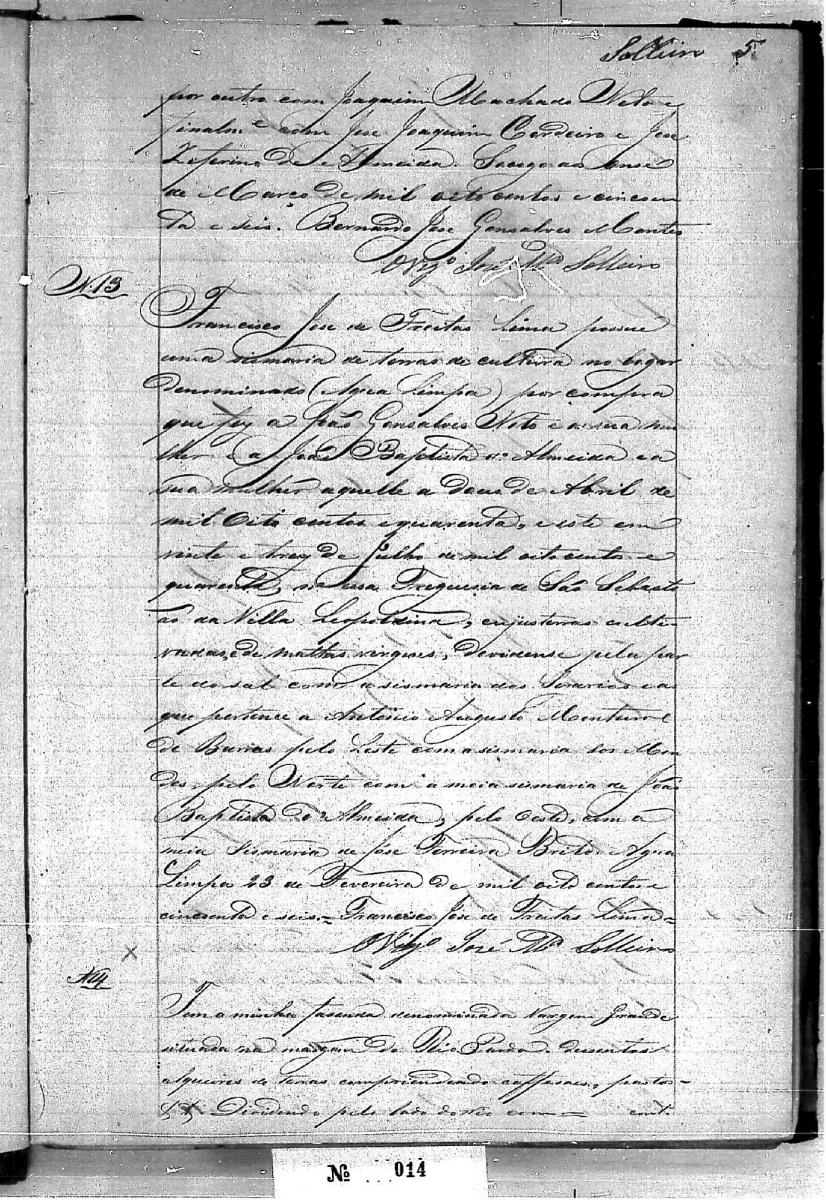 Solleiro 5.
por outro com Joaquim Machado Neto e
finalm.e com Jose Joaquim Cordeiro e Jose
Zeferino de Almeida. Socego ao onse
de Março de mil oito centos e cincoen
ta e seis. Bernardo Jose Gonsalves Montes
O Vigr.o José M.a Solleiro
N. 13
Francisco Jose de Freitas Lima possue
uma sismaria de terras de cultura no lugar
denominado (Agua Limpa) por compra
que fez a João Gonsalves Neto e a sua mu
lher e a João Baptista de Almeida e a
sua mulher aquelle a deus de Abril de
mil oito centos e quarenta, e este em
vinte e trez de Julho de mil oito centos e
quarenta, nessa Freguesia de São Sebasti
ão da Villa Leopoldina, cujas terras culti
vadas, e de mattas virgues, devidense pela par
te do sul com a sismaria dos e as
que pertence a Antônio Augusto Monteiro e
de Barros pelo Leste com a sismaria dos Mon
des, pelo Norte com a meia sismaria de João
Baptista de Almeida, pelo Oeste, com a
meia sismaria de Jóse Ferreira Brito e Agua
Limpa 23 de Fevereiro de mil oito centos e
cincoenta e seis.= Francisco Jóse de Freitas Lima=
O Vigr.o José M.a Solleiro
N. 14
Tem a minha fasenda denominada Vargem Grande
situada na margem do Rio Pardo dusentos
alqueires de terras comprehendendo caffesaes, pastos=
Dividendo pelo lado do rio com = cont.
No 014